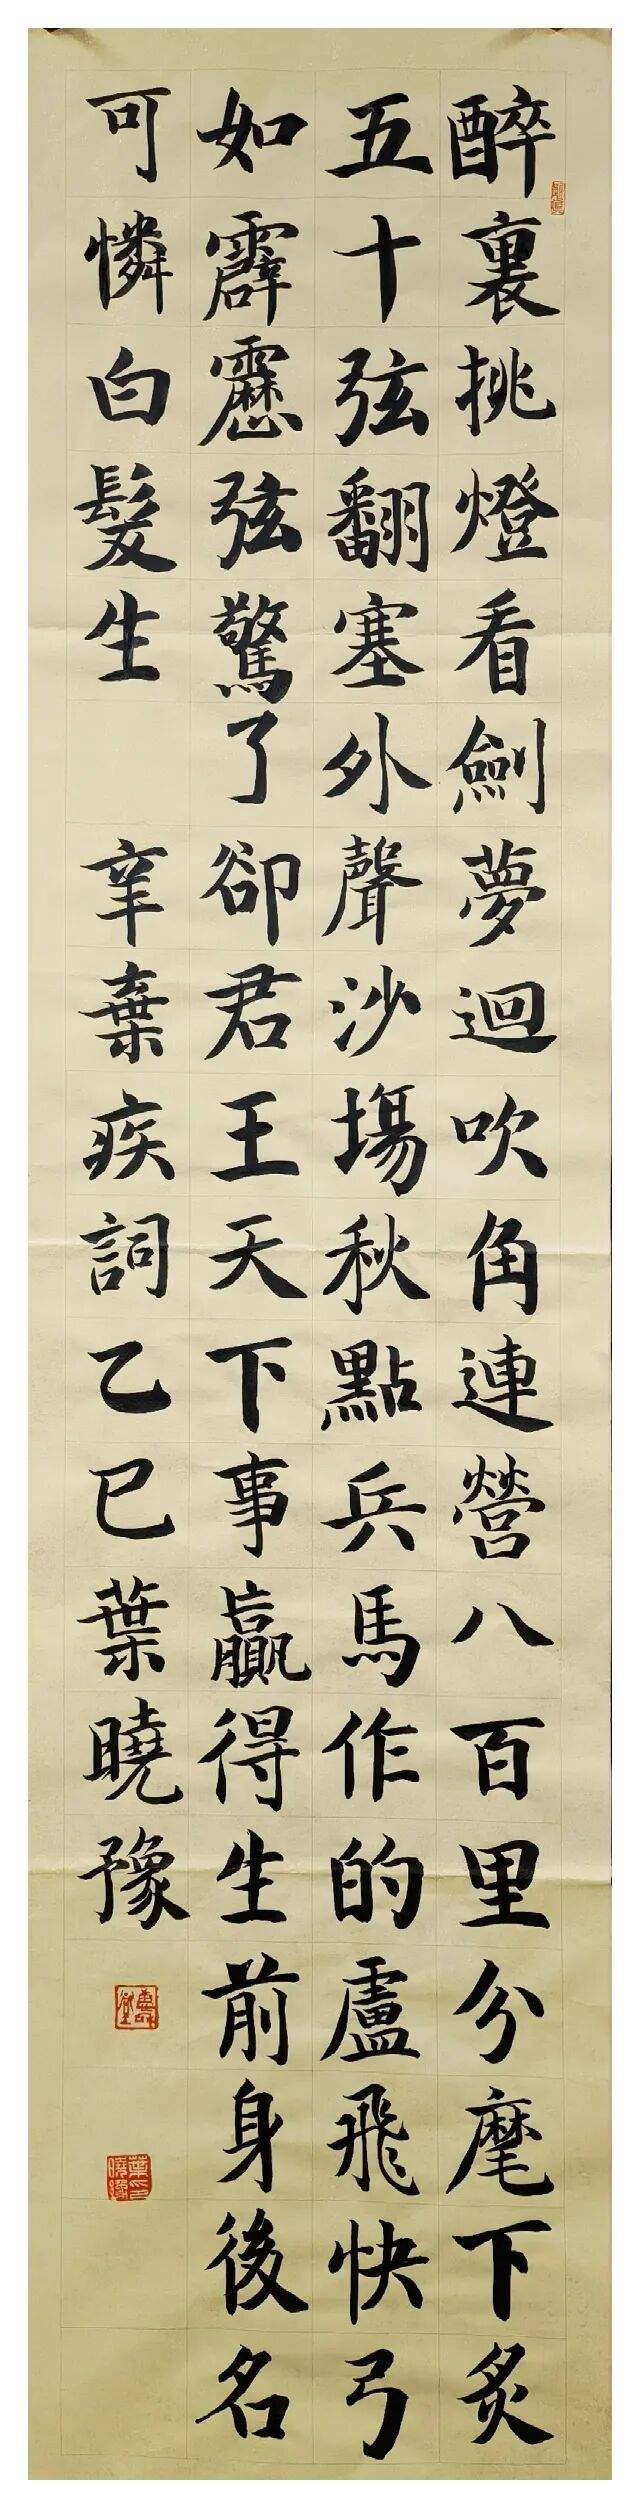 醉裏挑燈看劍夢迴吹角連營八百里分麾下炙
五十弦翻塞外聲沙場秋點兵馬作的盧飛快弓
如霹靂弦驚了卻君王天下事贏得生前身後名
可憐白髮生 辛棄疾詞乙巳葉曉豫